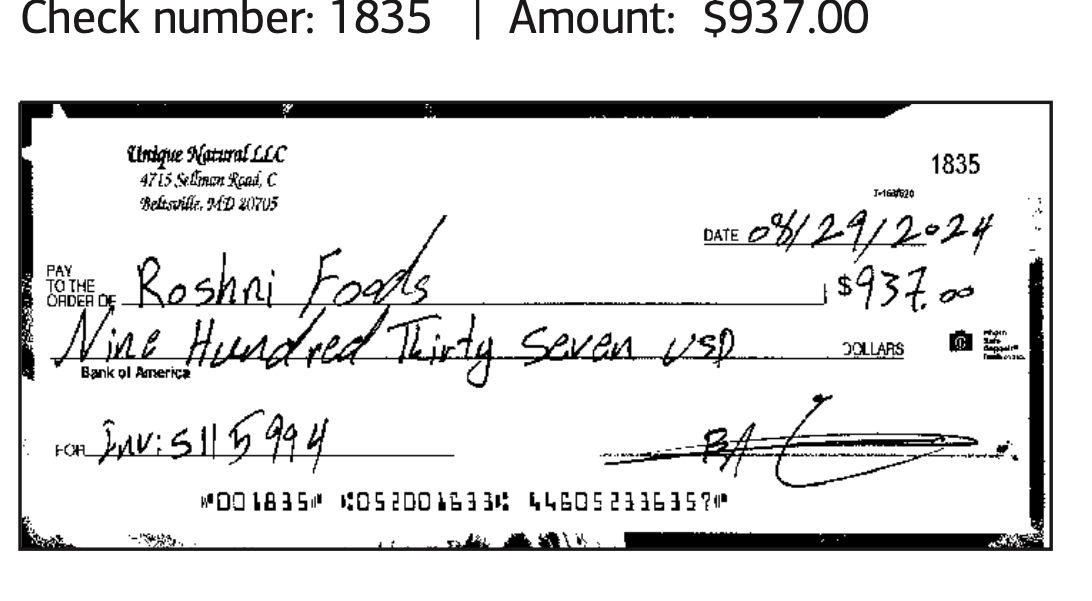 Check number: 1835 | Amount: $937.00
Unique Natural LLC
4715 Sellman Road, C
Beltsville, MD 20705
1835
DATE 08/29/2024
PAY TO THE ORDER OF Roshni Foods $937.00
Nine Hundred Thirty Seven USD DOLLARS
Bank of America
FOR Inv: S115994
⑈001835⑈ ⑆052001633⑆ 446052336357⑈